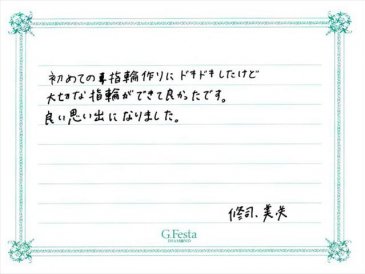 初めての指輪作りにドキドキしたけど
大切な指輪ができて良かったです。
良い思い出になりました。
修司、美咲
G.Festa
DIAMOND